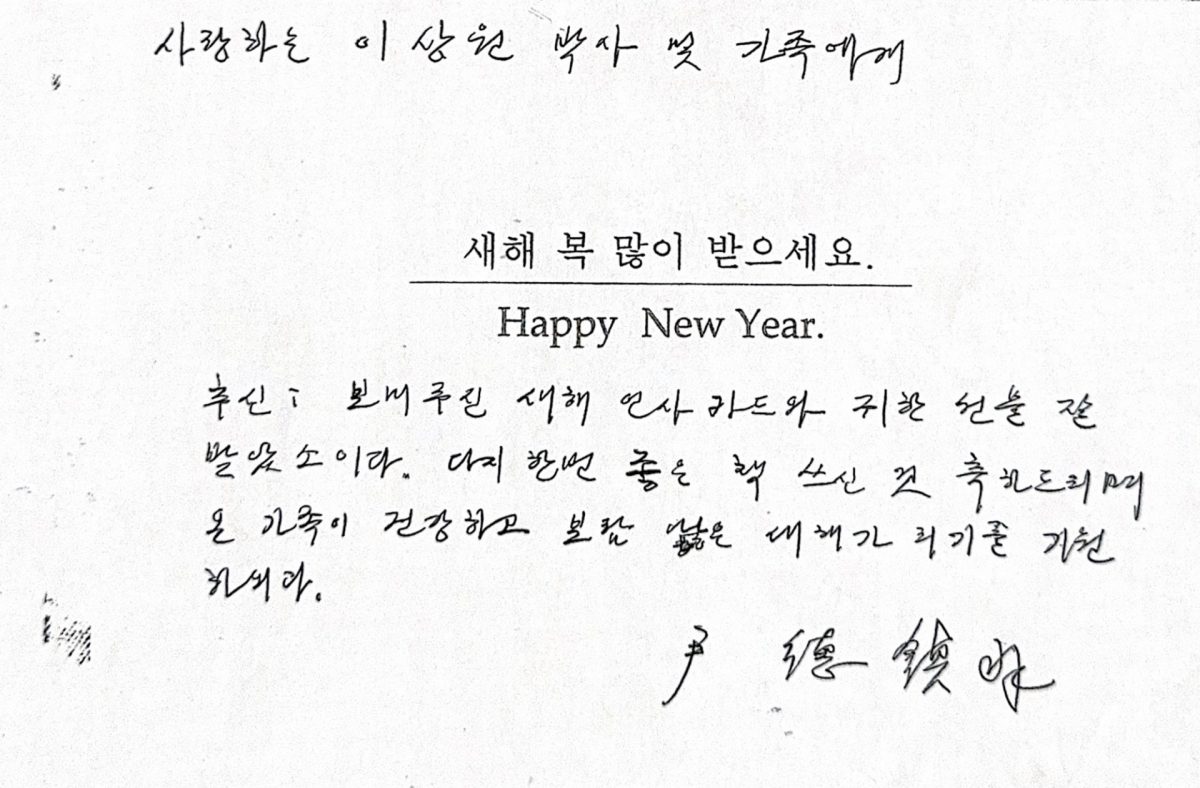 사랑하는 이상원 박사 및 가족에게
새해 복 많이 받으세요.
Happy New Year.
추신: 보내주신 새해 인사 카드와 귀한 선물 잘
받았소이다. 다시 한번 좋은 책 쓰신 것 축하드리며
온 가족이 건강하고 보람 많은 새해가 되기를 기원
하외다.
尹 德鎭